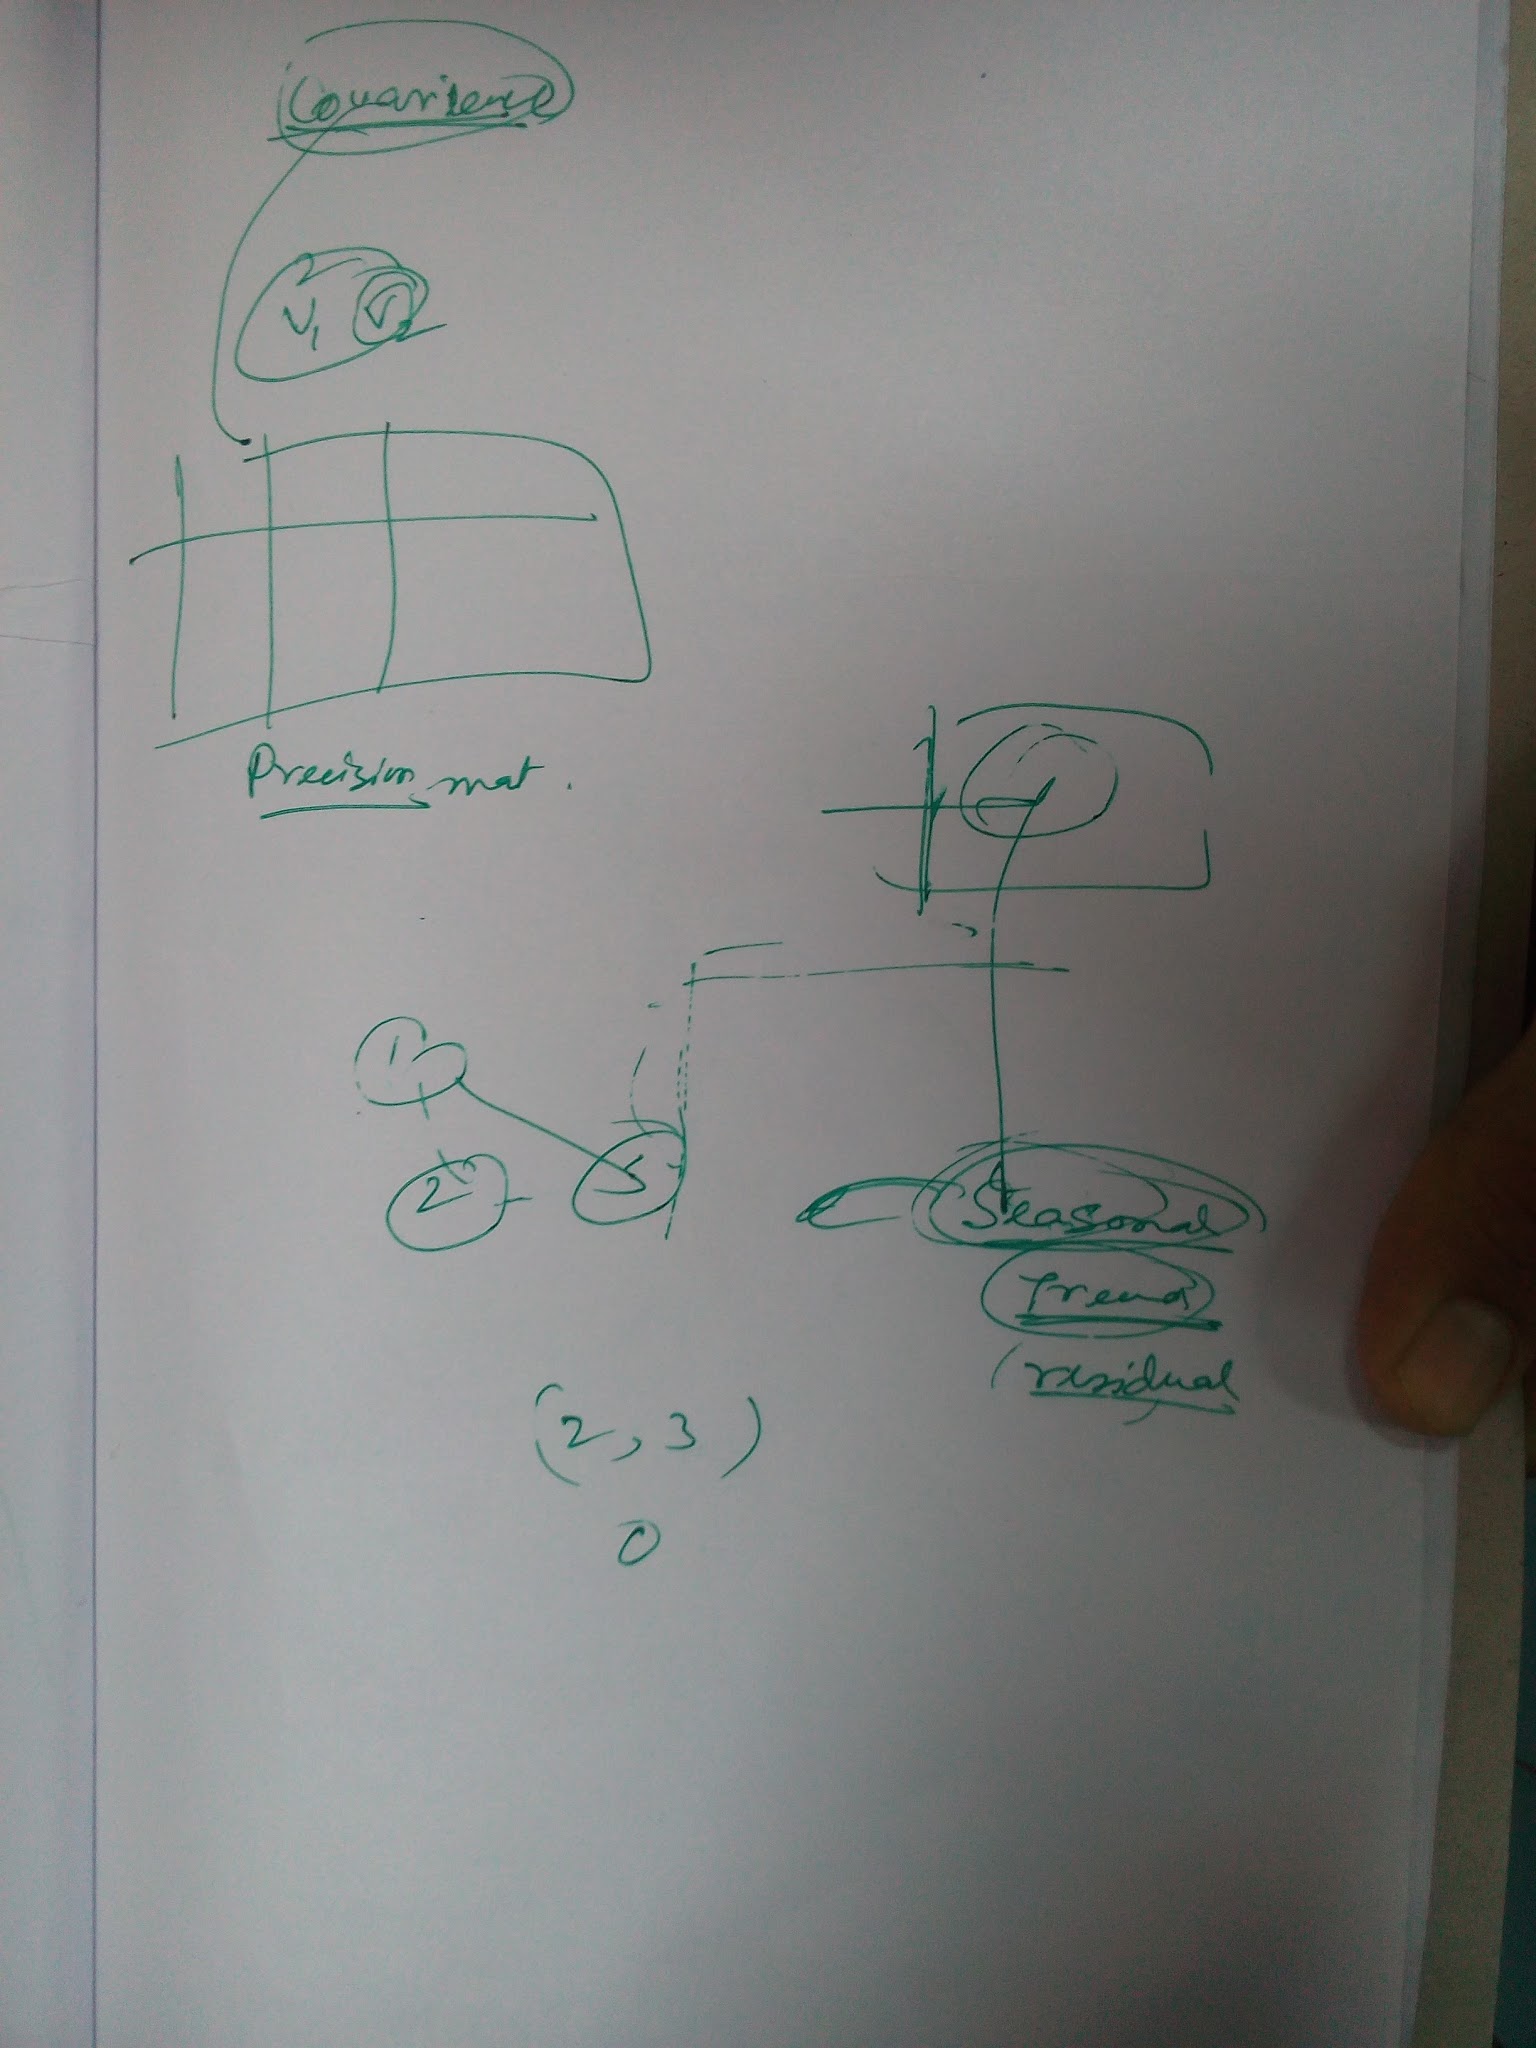 Covarience
V1 V2
Precision mat.
1
2
3
Seasonal
Trend
residual
(2, 3)
0